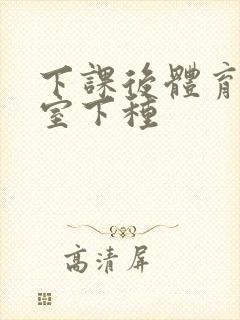 下課後體育
室下種
高清屏